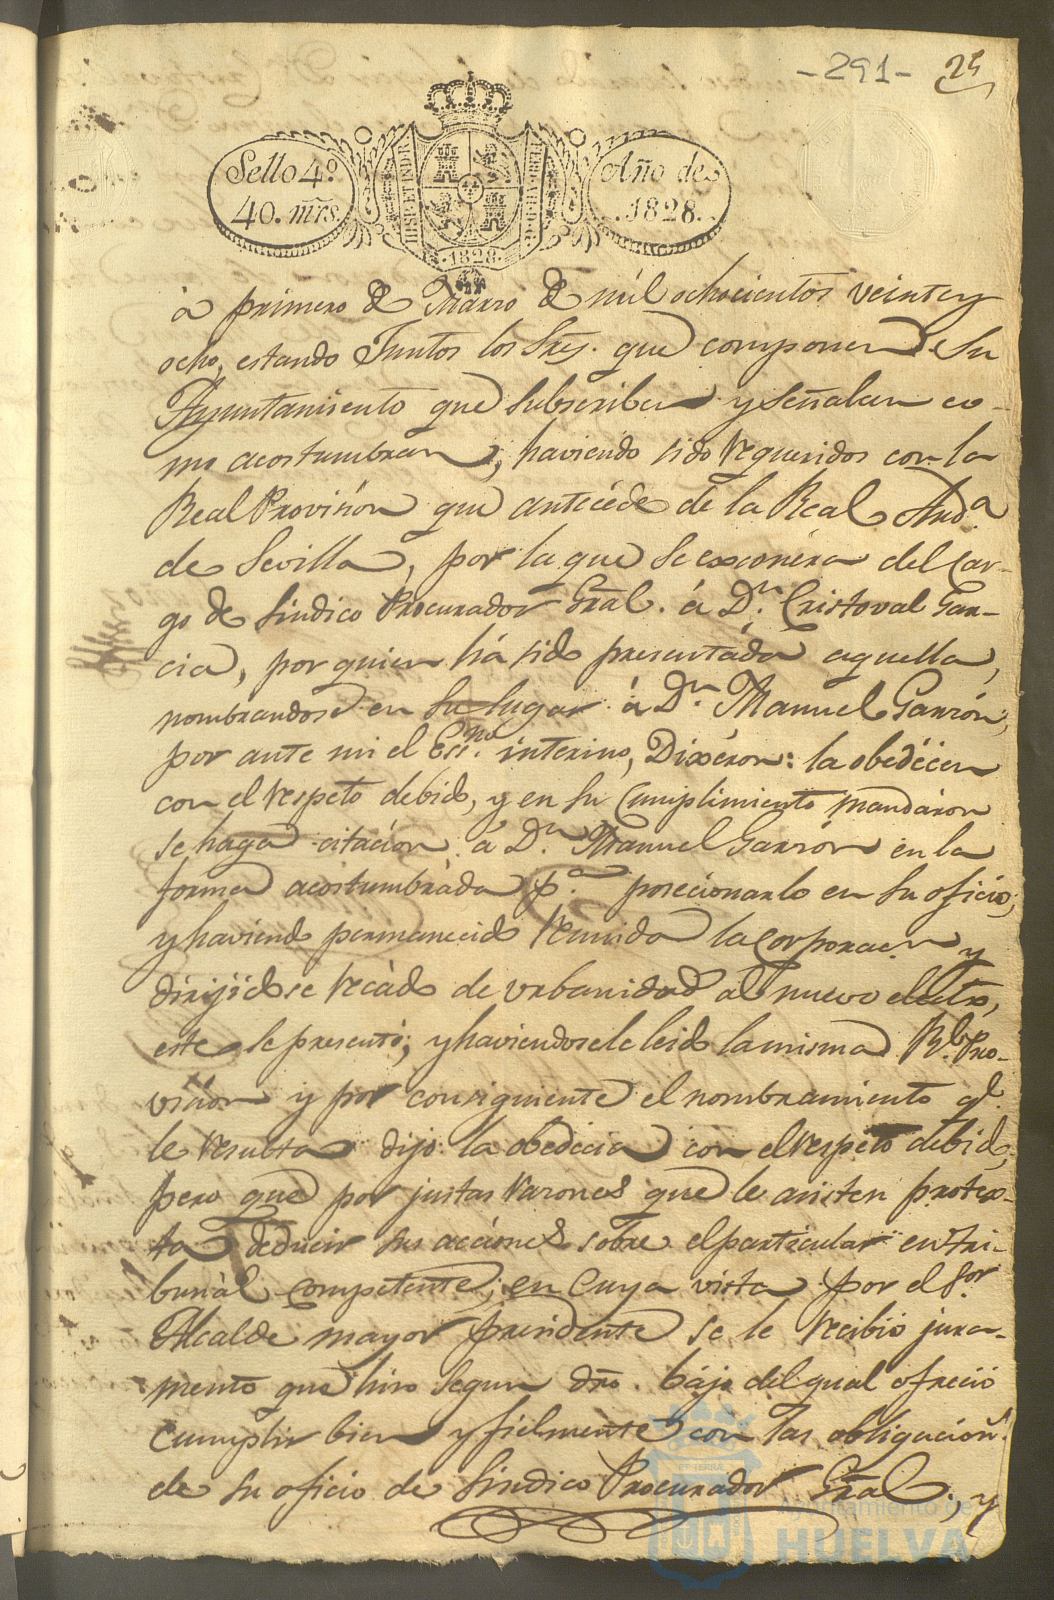 -291- 25
Sello 4º
40. mrs.
HISP. ET IND. R
1828.
Año de
1828.
à primero de Marzo de mil ochocientos veinte y
ocho, estando Juntos los Sres. que componen su
Ayuntamiento que subscriben y señalan co-
mo acostumbran, haviendo sido requeridos con la
Real Provisión que antecede de la Real Auda
de Sevilla, por la que se exonera del Car-
go de Sindico Procurador Gral. á Dn. Cristoval Gar-
cia, por quien há sido presentáda aquella,
nombrandose en su lugar á Dn Manuel Garzón,
por ante mi el Essno. interino, Dixéron: la obedécen
con el respeto debido, y en su Cumplimiento mandáron
se haga citación á Dn. Manuel Garzón en la
forma acostumbráda pa. posecionarlo en su oficio;
y haviendo permanecido reunida la Corporacn. y
dirijidose recádo de urbanidad al nuevo electo,
este se presentó; y haviendosele leido la misma Rl. Pro-
visión y por consiguiente el nombramiento qe.
le resulta dijo: la obedecia con el respeto debido,
pero que por justas razones que le asisten protex-
ta deducir sus acciones sobre el particular en tri-
bunál competente; en cuya vista por el Sor
Alcalde mayor presidente se le recibio jura-
mento que hizo segun dro. bájo del qual ofreció
cumplir bien y fielmente con las obligacións.
de su oficio de Sindico Procurador Gral., y
Ayuntamiento de
HUELVA